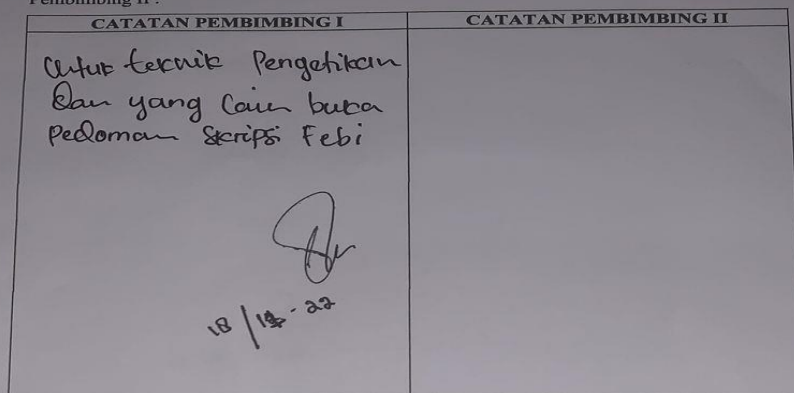 Pembimbing II :
CATATAN PEMBIMBING I
CATATAN PEMBIMBING II
Untuk teknik Pengetikan
dan yang lain buka
Pedoman Skripsi Febi
18/ -22